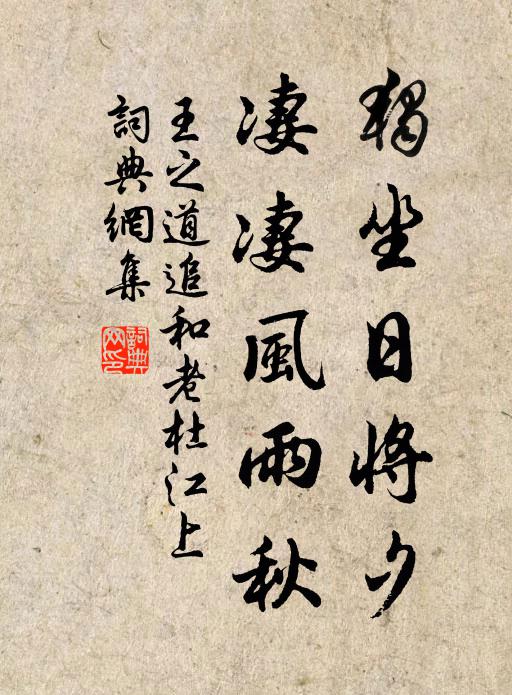 獨坐日將夕
凄凄風雨秋
王之道追和老杜江上
詞典網集
詞典
网印